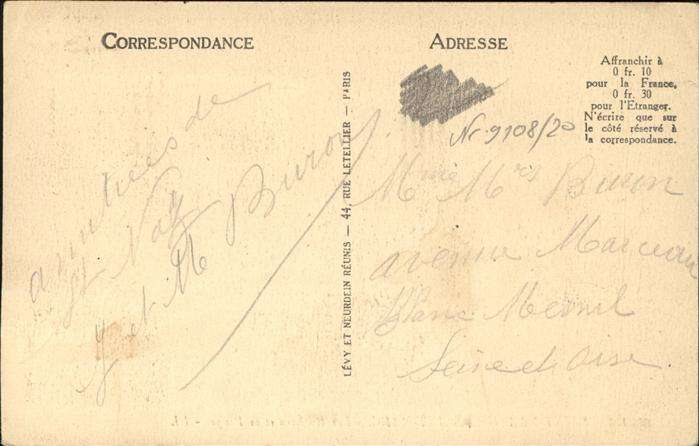 CORRESPONDANCE
amitiées de
et M Buron
LÉVY ET NEURDEIN RÉUNIS — 44, RUE LETELLIER — PARIS
ADRESSE
Affranchir à
0 fr. 10
pour la France,
0 fr. 30
pour l'Etranger.
N'écrire que sur
le côté réservé à
la correspondance.
Nr. 9108/20
Mme Mris Buron
avenue Marceau
Blanc Mesnil
Seine et Oise